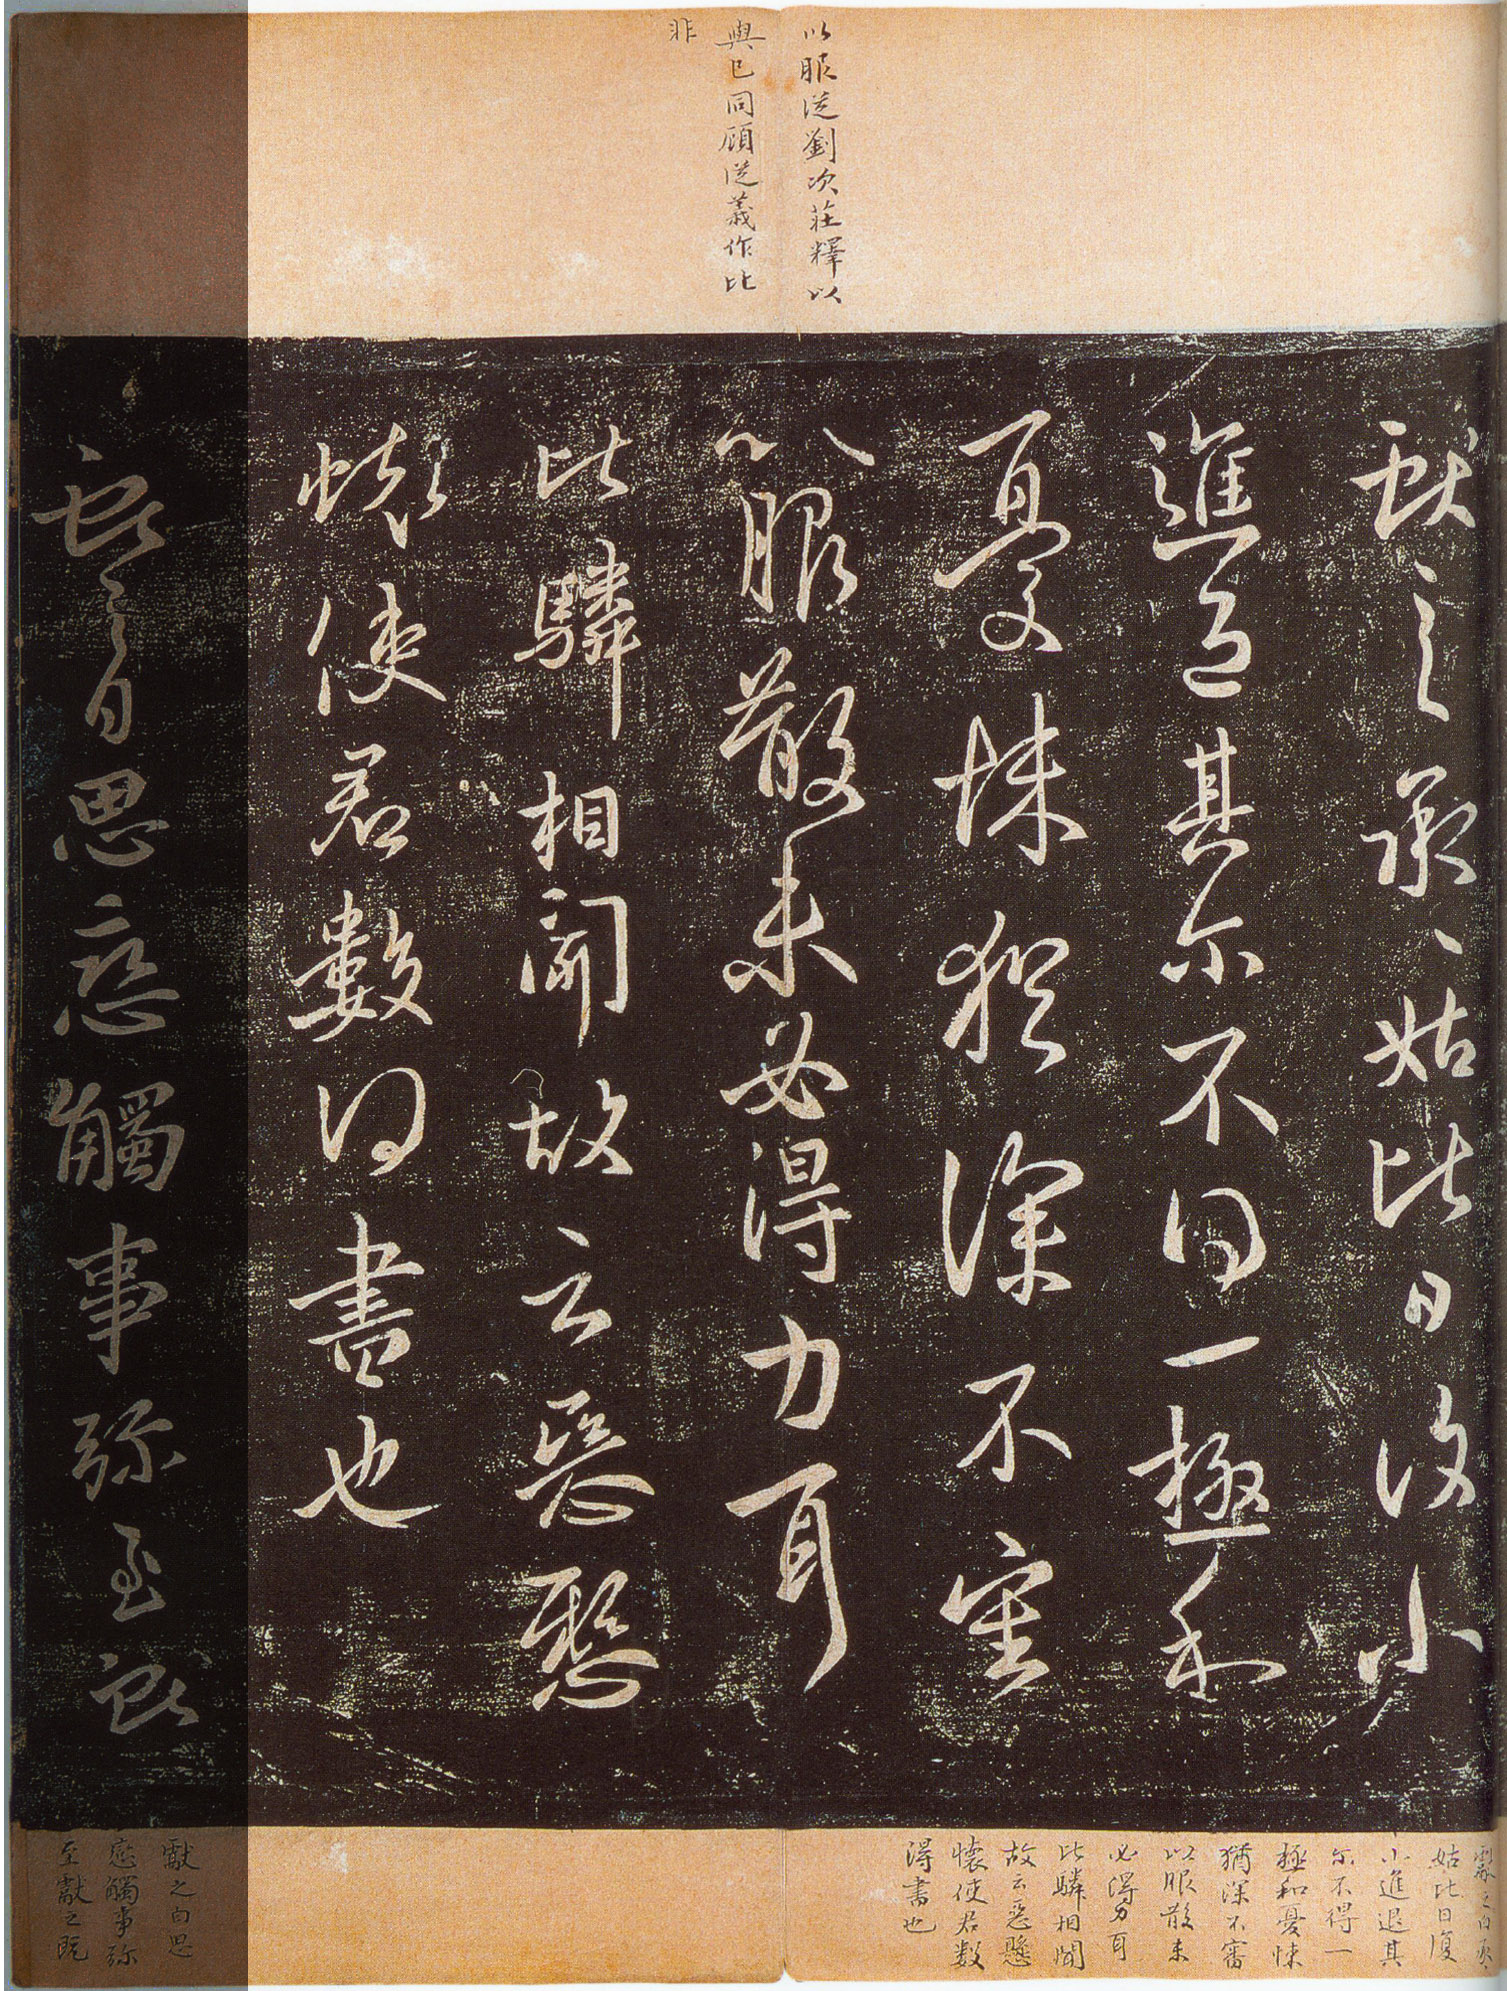 以服從劉次莊釋以
與已同顧從義作比
非
獻之承、姑比日復小
進退其尒不得一極和
憂悚猶深不審
以服散未必得力耳
比驎相聞故云惡懸
懷使君數得書也
獻之白思戀觸事彌至獻
獻之白承、
姑比日復
小進退其
尒不得一
極和憂悚
猶深不審
以服散未
必得力耳
比驎相聞
故云惡懸
懷使君数
得書也
獻之白思
戀觸事弥
至獻之既